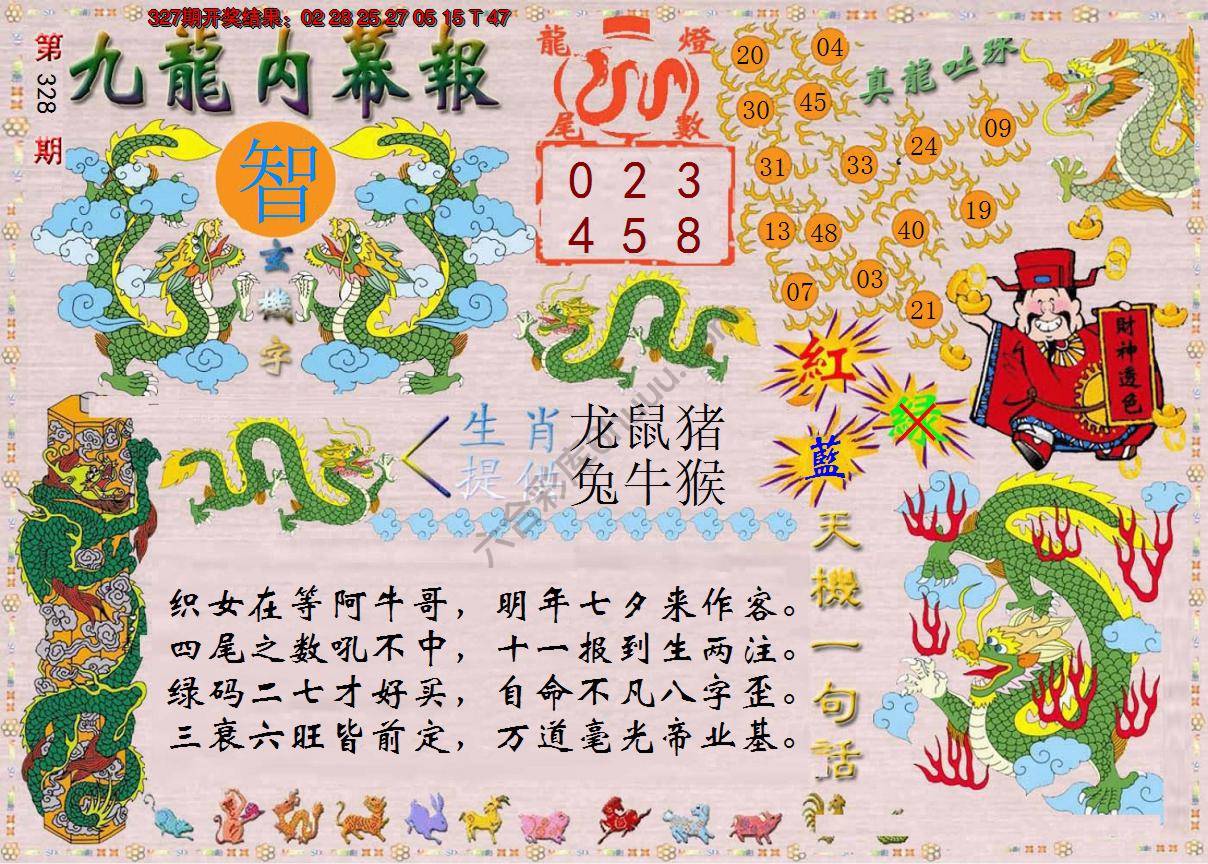 327期开奖结果：02 28 25 27 05 15 T 47
第328期
九龍内幕報
智
玄機字
龍燈
尾數
0 2 3
4 5 8
真龍吐珠
20
04
30
45
24
09
31
33
19
13
48
40
03
07
21
財神透色
紅
绿
藍
生肖
提供
龙鼠猪
兔牛猴
天機一句話
织女在等阿牛哥，明年七夕来作客。
四尾之数吼不中，十一报到生两注。
绿码二七才好买，自命不凡八字歪。
三衰六旺皆前定，万道毫光帝业基。